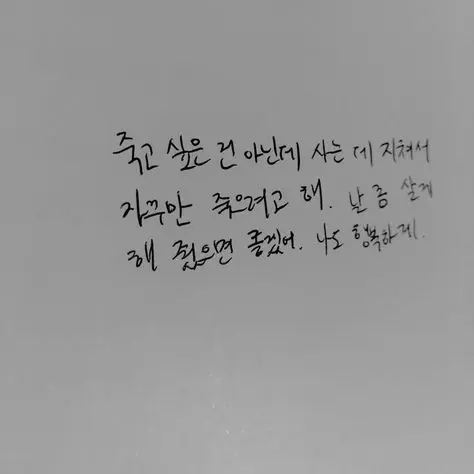 죽고 싶은 건 아닌데 사는 데 지쳐서
자꾸만 죽으려고 해. 날 좀 살게
해 줬으면 좋겠어. 나도 행복하게.